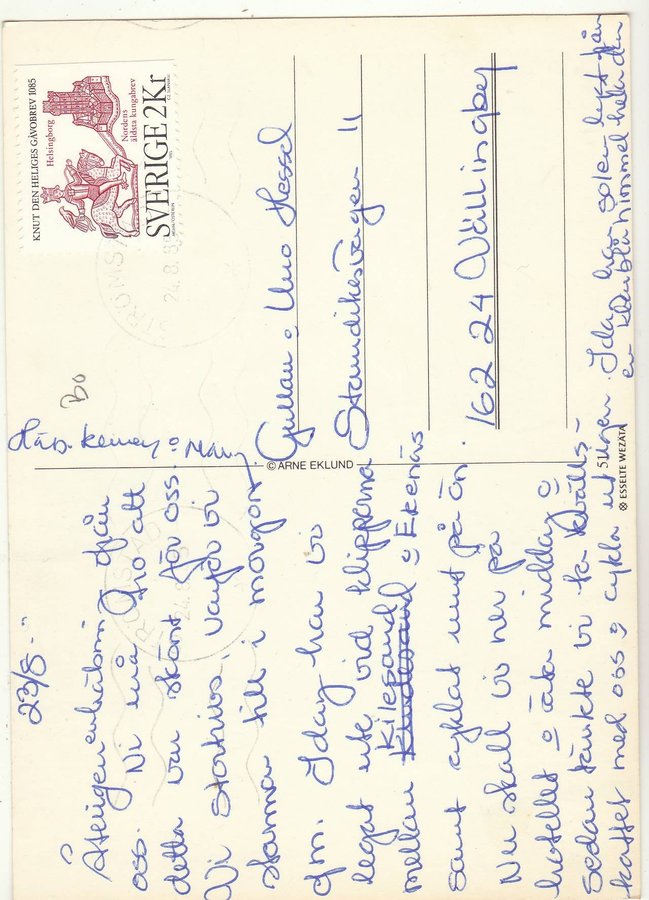 23/8 -
Återigen en hälsning från
oss. Ni må tro att
detta var skönt för oss.
Vi stortrivs, varför vi
stannar till i morgon
fm. Idag har vi
legat ute vid klipporna
mellan Kilesand o Ekenäs
samt cyklat runt på ön.
Nu skall vi ner på
hotellet o äta middag o
sedan tänkte vi ta kvälls-
kaffet med oss o cykla ut igen. Idag har solen lyst från
en klarblå himmel hela den
Häls. Kenney o Mary
Bo
Gullan o Uno Hessel
Standikesvägen 11
162 24 Vällingby
KNUT DEN HELIGES GÅVOBREV 1085
Helsingborg
Nordens
äldsta kungabrev
SVERIGE 2Kr
STRÖMS
24.8.8
© ARNE EKLUND
ESSELTE WEZÄTA